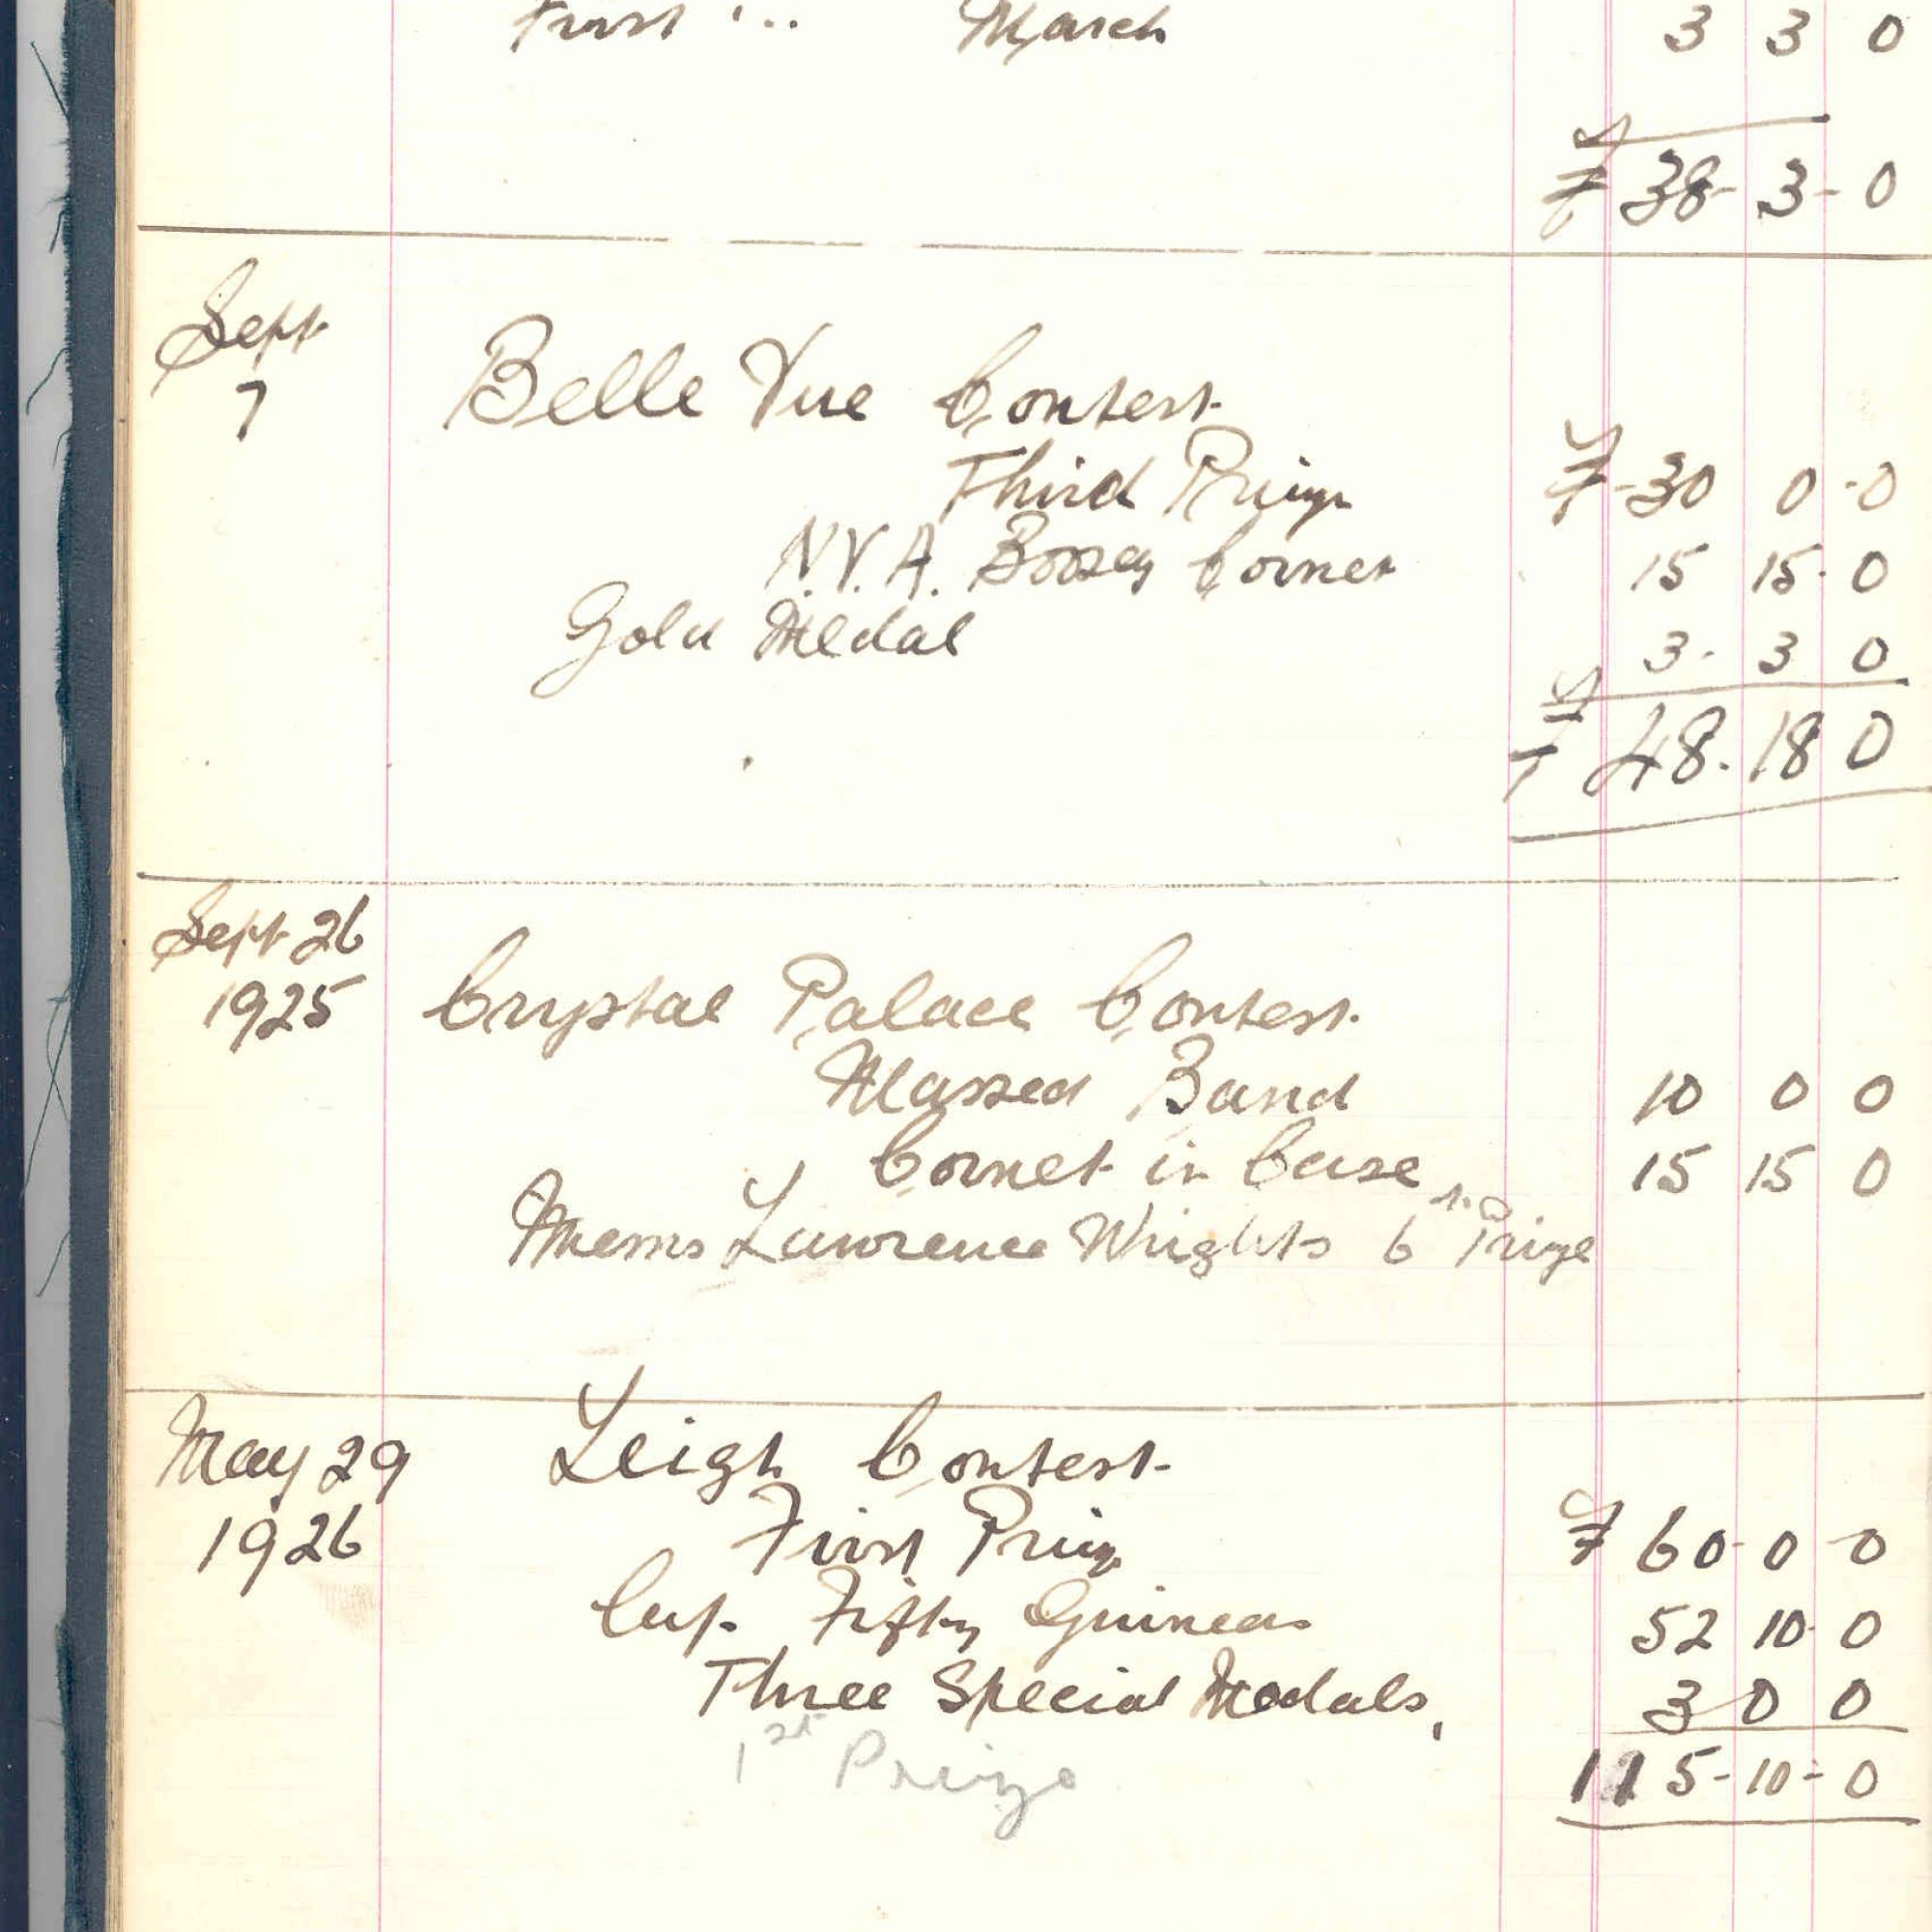 First " " March 3 3 0
£ 38 - 3 - 0
Sept
7 Belle Vue Contest
Third Prize £ - 30 0 - 0
N.V.A. Boosey Cornet 15 15 - 0
Gold Medal 3 - 3 0
£ 48 . 18 0
Sept 26
1925 Crystal Palace Contest
Massed Band 10 0 0
Cornet in Case 15 15 0
Messrs Lawrence Wrights 6th Prize
May 29 Leigh Contest
1926 First Prize £ 60 - 0 - 0
Cup. Fifty Guineas 52 10 - 0
Three Special Medals, 3 0 0
1st Prize 115 - 10 - 0